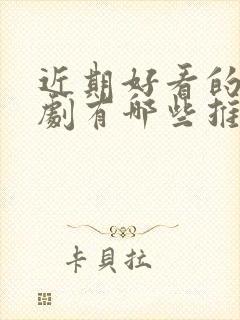 近期好看的
劇有哪些推
卡貝拉